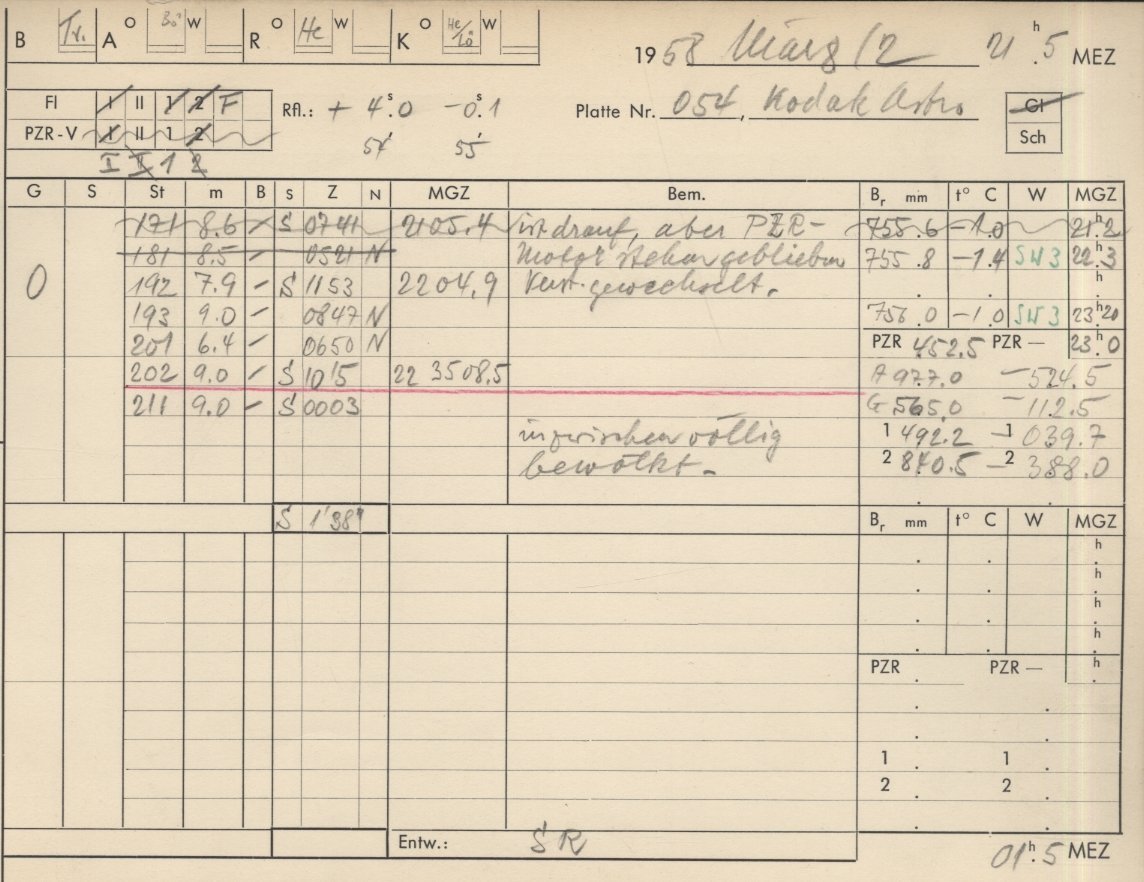 B Tr. A O Bö W R O He W K O He/Lö W
1958 März 12 21h.5 MEZ
FI I II 1 2 F Rfl.: + 4s.0 -0s.1 Platte Nr. 054, Kodak Astro GI
PZR-V I II 1 2 54' 55' Sch
I II 1 2
G S St m B S Z N MGZ Bem. Br mm t° C W MGZ
171 8.6 / S 0741 2105.4 ist drauf, aber PZR- 755.6 -1.0 21h.2
181 8.5 - 0521 N Motor stehengeblieben 755.8 -1.4 SW3 22.3
0 192 7.9 - S 1153 2204.9 Verst. gewechselt. . . h
193 9.0 - 0847 N 756.0 -1.0 SW3 23h20
201 6.4 - 0650 N PZR 452.5 PZR — 23h.0
202 9.0 - S 10'5 22 3508.5 A 977.0 -524.5
211 9.0 - S 0003 G 565.0 -112.5
inzwischen völlig 1 492.2 -1 039.7
bewölkt. 2 840.5 -2 388.0
S 1'38" Br mm t° C W MGZ
h
h
h
h
PZR . PZR — h
1 . 1 .
2 . 2 .
Entw.: SR
01h.5 MEZ